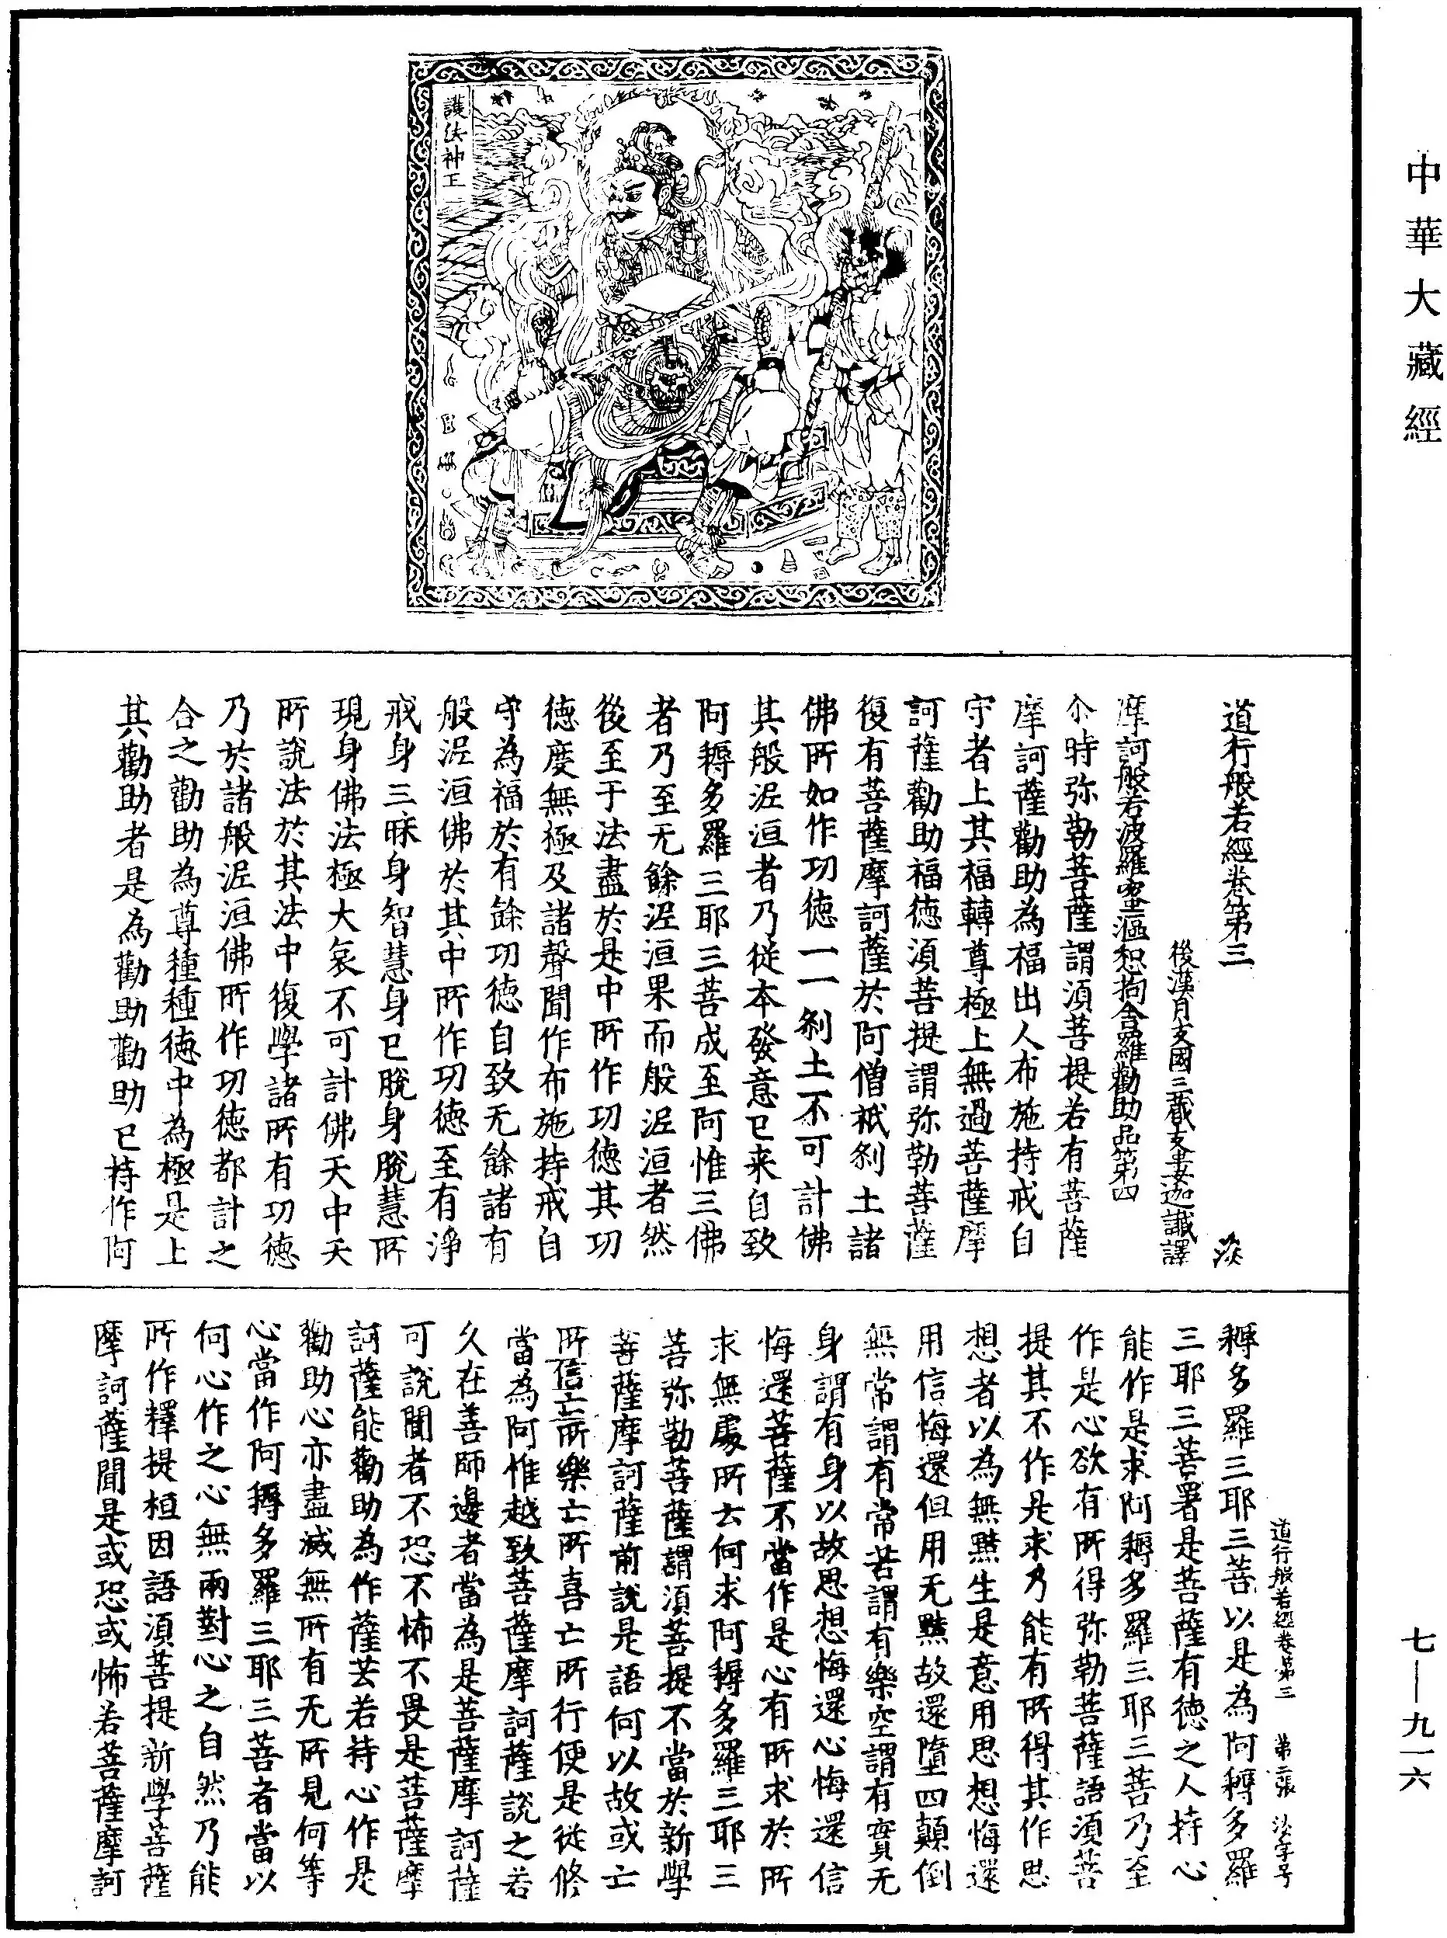 中華大藏經
護法神王
道行般若經卷第三
後漢月支國三藏支婁迦讖譯
摩訶般若波羅蜜漚惒拘舍羅勸助品第四
尒時弥勒菩薩謂湏菩提若有菩薩
摩訶薩勸助為福出人布施持戒自
守者上其福轉尊極上無過菩薩摩
訶薩勸助福德湏菩提謂弥勒菩薩
復有菩薩摩訶薩於阿僧祇刹土諸
佛所如作功德一一刹土不可計佛
其般泥洹者乃從本發意已来自致
阿耨多羅三耶三菩成至阿惟三佛
者乃至无餘泥洹果而般泥洹者然
後至于法盡於是中所作功德其功
德度無極及諸聲聞作布施持戒自
守為福於有餘功德自致无餘諸有
般泥洹佛於其中所作功德至有淨
戒身三昧身智慧身已脫身脫慧所
現身佛法極大哀不可計佛天中天
所說法於其法中復學諸所有功德
乃於諸般泥洹佛所作功德都計之
合之勸助為尊種種德中為極是上
其勸助者是為勸助勸助已持作阿
耨多羅三耶三菩以是為阿耨多羅
三耶三菩署是菩薩有德之人持心
能作是求阿耨多羅三耶三菩乃至
作是心欲有所得弥勒菩薩語湏菩
提其不作是求乃能有所得其作思
想者以為無黠生是意用思想悔還
用信悔還但用无黠故還墮四顛倒
無常謂有常苦謂有樂空謂有實无
身謂有身以故思想悔還心悔還信
悔還菩薩不當作是心有所求於所
求無處所云何求阿耨多羅三耶三
菩弥勒菩薩謂湏菩提不當於新學
菩薩摩訶薩前說是語何以故或亡
所信亡所樂亡所喜亡所行便是從脩
當為阿惟越致菩薩摩訶薩說之若
久在善師邊者當為是菩薩摩訶薩
可說聞者不恐不怖不畏是菩薩摩
訶薩能勸助為作薩芸若持心作是
勸助心亦盡滅無所有无所見何等
心當作阿耨多羅三耶三菩者當以
何心作之心無兩對心之自然乃能
所作釋提桓因語湏菩提新學菩薩
摩訶薩聞是或恐或怖若菩薩摩訶
道行般若經卷第三 第二張 法字号
七—九一六